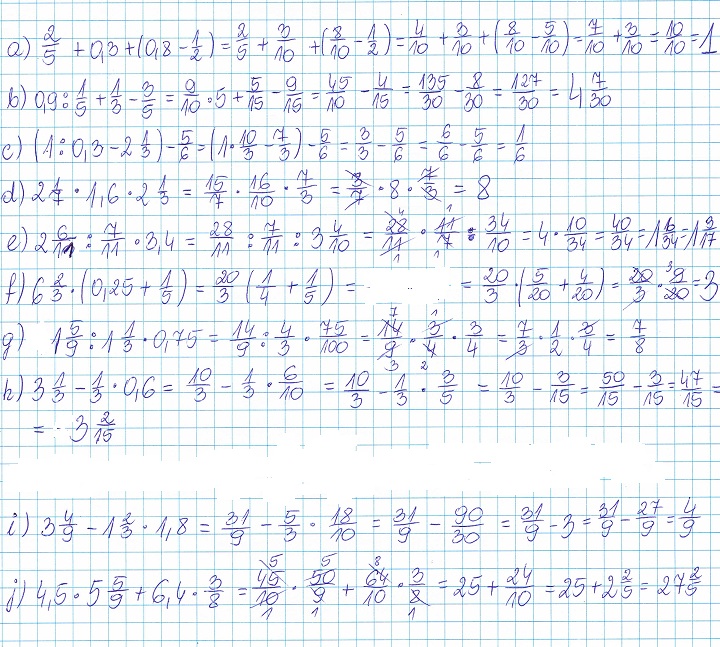 a) 2/5 + 0,3 + (0,8 - 1/2) = 2/5 + 3/10 + (8/10 - 1/2) = 4/10 + 3/10 + (8/10 - 5/10) = 7/10 + 3/10 = 10/10 = 1
b) 0,9 : 1/5 + 1/3 - 3/5 = 9/10 · 5 + 5/15 - 9/15 = 45/10 - 4/15 = 135/30 - 8/30 = 127/30 = 4 7/30
c) (1 : 0,3 - 2 1/3) - 5/6 = (1 · 10/3 - 7/3) - 5/6 = 3/3 - 5/6 = 6/6 - 5/6 = 1/6
d) 2 1/7 · 1,6 · 2 1/3 = 15/7 · 16/10 · 7/3 = 3/7 · 8 · 7/3 = 8
e) 2 6/11 : 7/11 · 3,4 = 28/11 : 7/11 : 3 4/10 = 28/11 · 11/7 : 34/10 = 4 · 10/34 = 40/34 = 1 6/34 = 1 9/17
f) 6 2/3 · (0,25 + 1/5) = 20/3 (1/4 + 1/5) = = 20/3 · (5/20 + 4/20) = 20/3 · 9/20 = 3
g) 1 5/9 : 1 1/3 · 0,75 = 14/9 : 4/3 · 75/100 = 14/9 · 3/4 · 3/4 = 7/3 · 1/2 · 3/4 = 7/8
h) 3 1/3 - 1/3 · 0,6 = 10/3 - 1/3 · 6/10 = 10/3 - 1/3 · 3/5 = 10/3 - 3/15 = 50/15 - 3/15 = 47/15 =
= 3 2/15
i) 3 4/9 - 1 2/3 · 1,8 = 31/9 - 5/3 · 18/10 = 31/9 - 90/30 = 31/9 - 3 = 31/9 - 27/9 = 4/9
j) 4,5 · 5 5/9 + 6,4 · 3/8 = 45/10 · 50/9 + 64/10 · 3/8 = 25 + 24/10 = 25 + 2 2/5 = 27 2/5